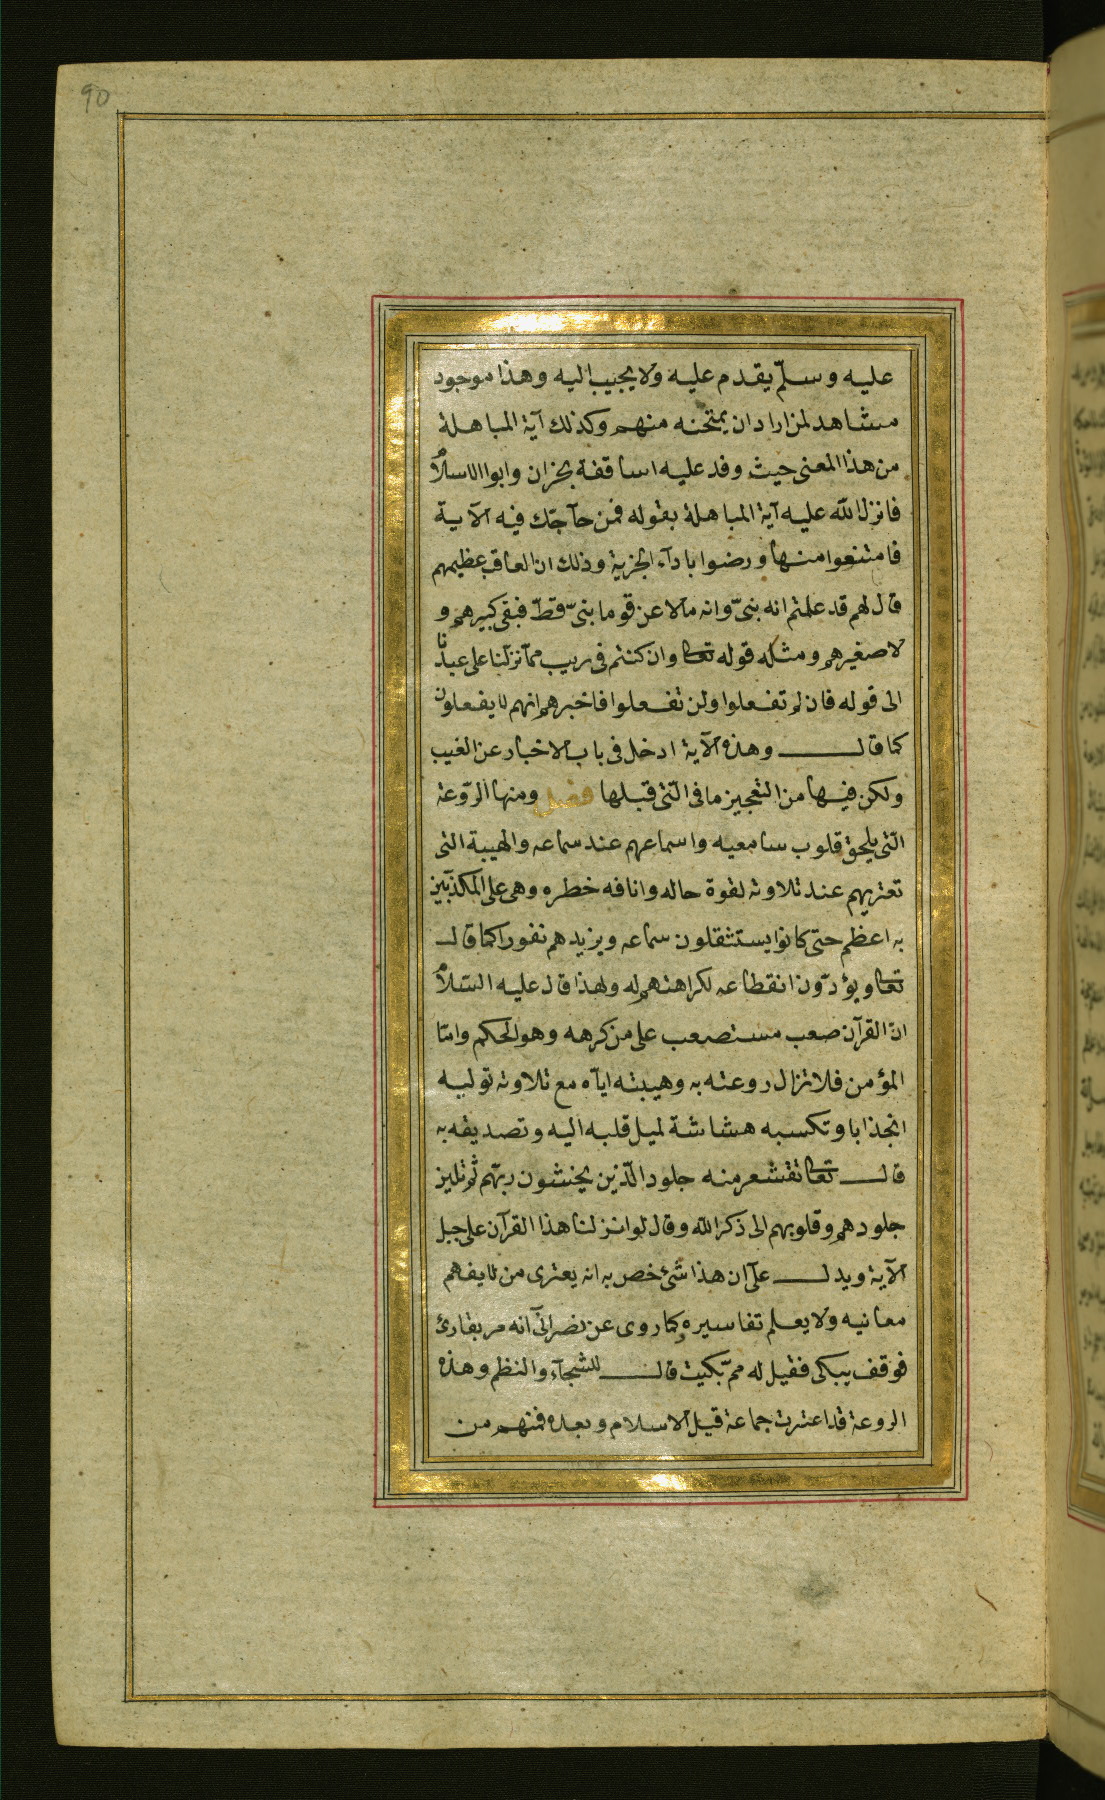 90
عليه وسلّم يقدم عليه ولا يجيب اليه وهذا موجود
مشاهد لمن اراد ان يمتحنه منهم وكذلك آية المباهلة
من هذا المعنى حيث وفد عليه اساقفة نجران وابوا الاسلام
فانزل الله عليه آية المباهلة بقوله فمن حآجّك فيه الآية
فامتنعوا منها ورضوا باداء الجزية وذلك ان العاقب عظيمهم
قال لهم قد علمتم انه نبىّ وانه ما لاعن قوما نبىّ قطّ فبقى كبيرهم و
لا صغيرهم ومثله قوله تعالى وان كنتم فى ريب ممآ نزلنا على عبدنا
الى قوله فان لم تفعلوا ولن تفعلوا فاخبرهم انهم لا يفعلون
كما قال وهذه الآية ادخل فى باب الاخبار عن الغيب
ولكن فيها من التعجيز ما فى الّتى قبلها فصل ومنها الرّوعة
الّتى يلحق قلوب سامعيه واسماعهم عند سماعه والهيبة التى
تعتريهم عند تلاوته لقوة حاله وانافه خطره وهى على المكذّبين
به اعظم حتى كانوا يستثقلون سماعه ويزيدهم نفورا كما قال
تعالى ويؤدّون انقطاعه لكراهتهم له ولهذا قال عليه السّلام
انّ القرآن صعب مستصعب على من كرهه وهو الحكم وامّا
المؤمن فلا تزال روعته به وهيبته ايّاه مع تلاوته توليه
انجذابا وتكسبه هشاشة لميل قلبه اليه وتصديقه به
قال تعالى تقشعر منه جلود الّذين يخشون ربّهم ثم تلين
جلودهم وقلوبهم الى ذكر الله وقال لو انزلنا هذا القرآن على جبل
الآية ويدل علىٓ ان هذا شئ خص به انه يعترى من لا يفهم
معانيه ولا يعلم تفاسيره كما روى عن نصرانىّ انه مر بقارئ
فوقف يبكى فقيل له ممّ بكيت قال للشجآء والنظم وهذه
الروعة قد اعترت جماعة قبل الاسلام وبعده فمنهم من